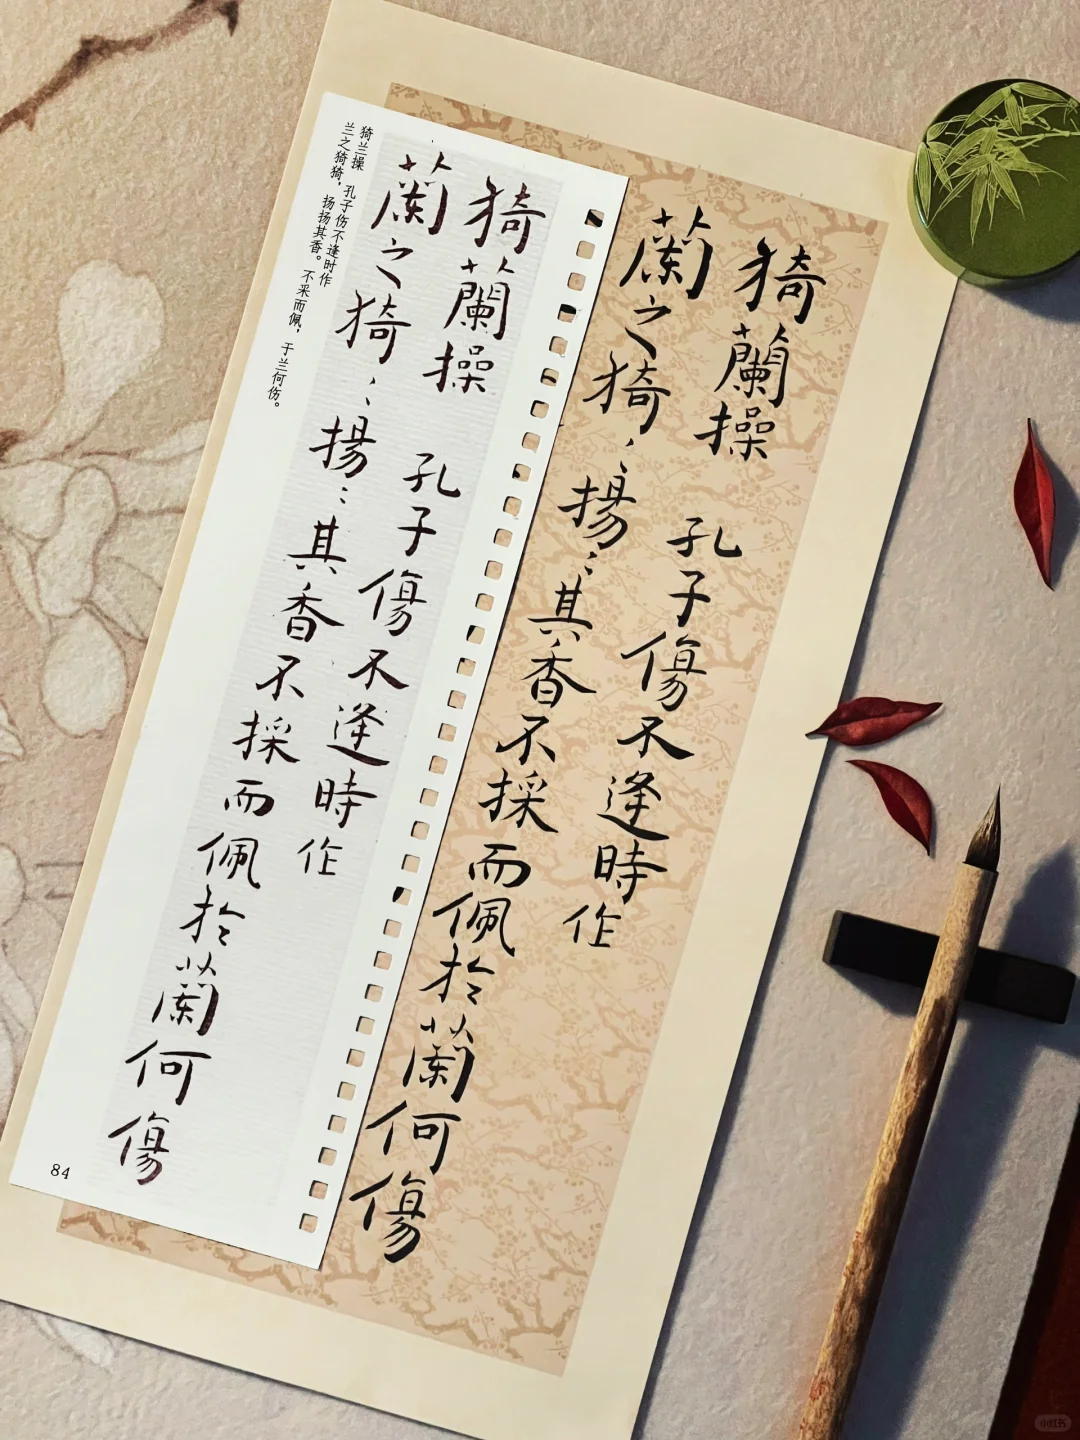 猗蘭操 孔子傷不逢時作
蘭之猗〻揚〻其香不採而佩於蘭何傷
猗兰操 孔子伤不逢时作
兰之猗猗，扬扬其香。不采而佩，于兰何伤。
猗蘭操 孔子傷不逢時作
蘭之猗〻揚〻其香不採而佩於蘭何傷
84
小红书